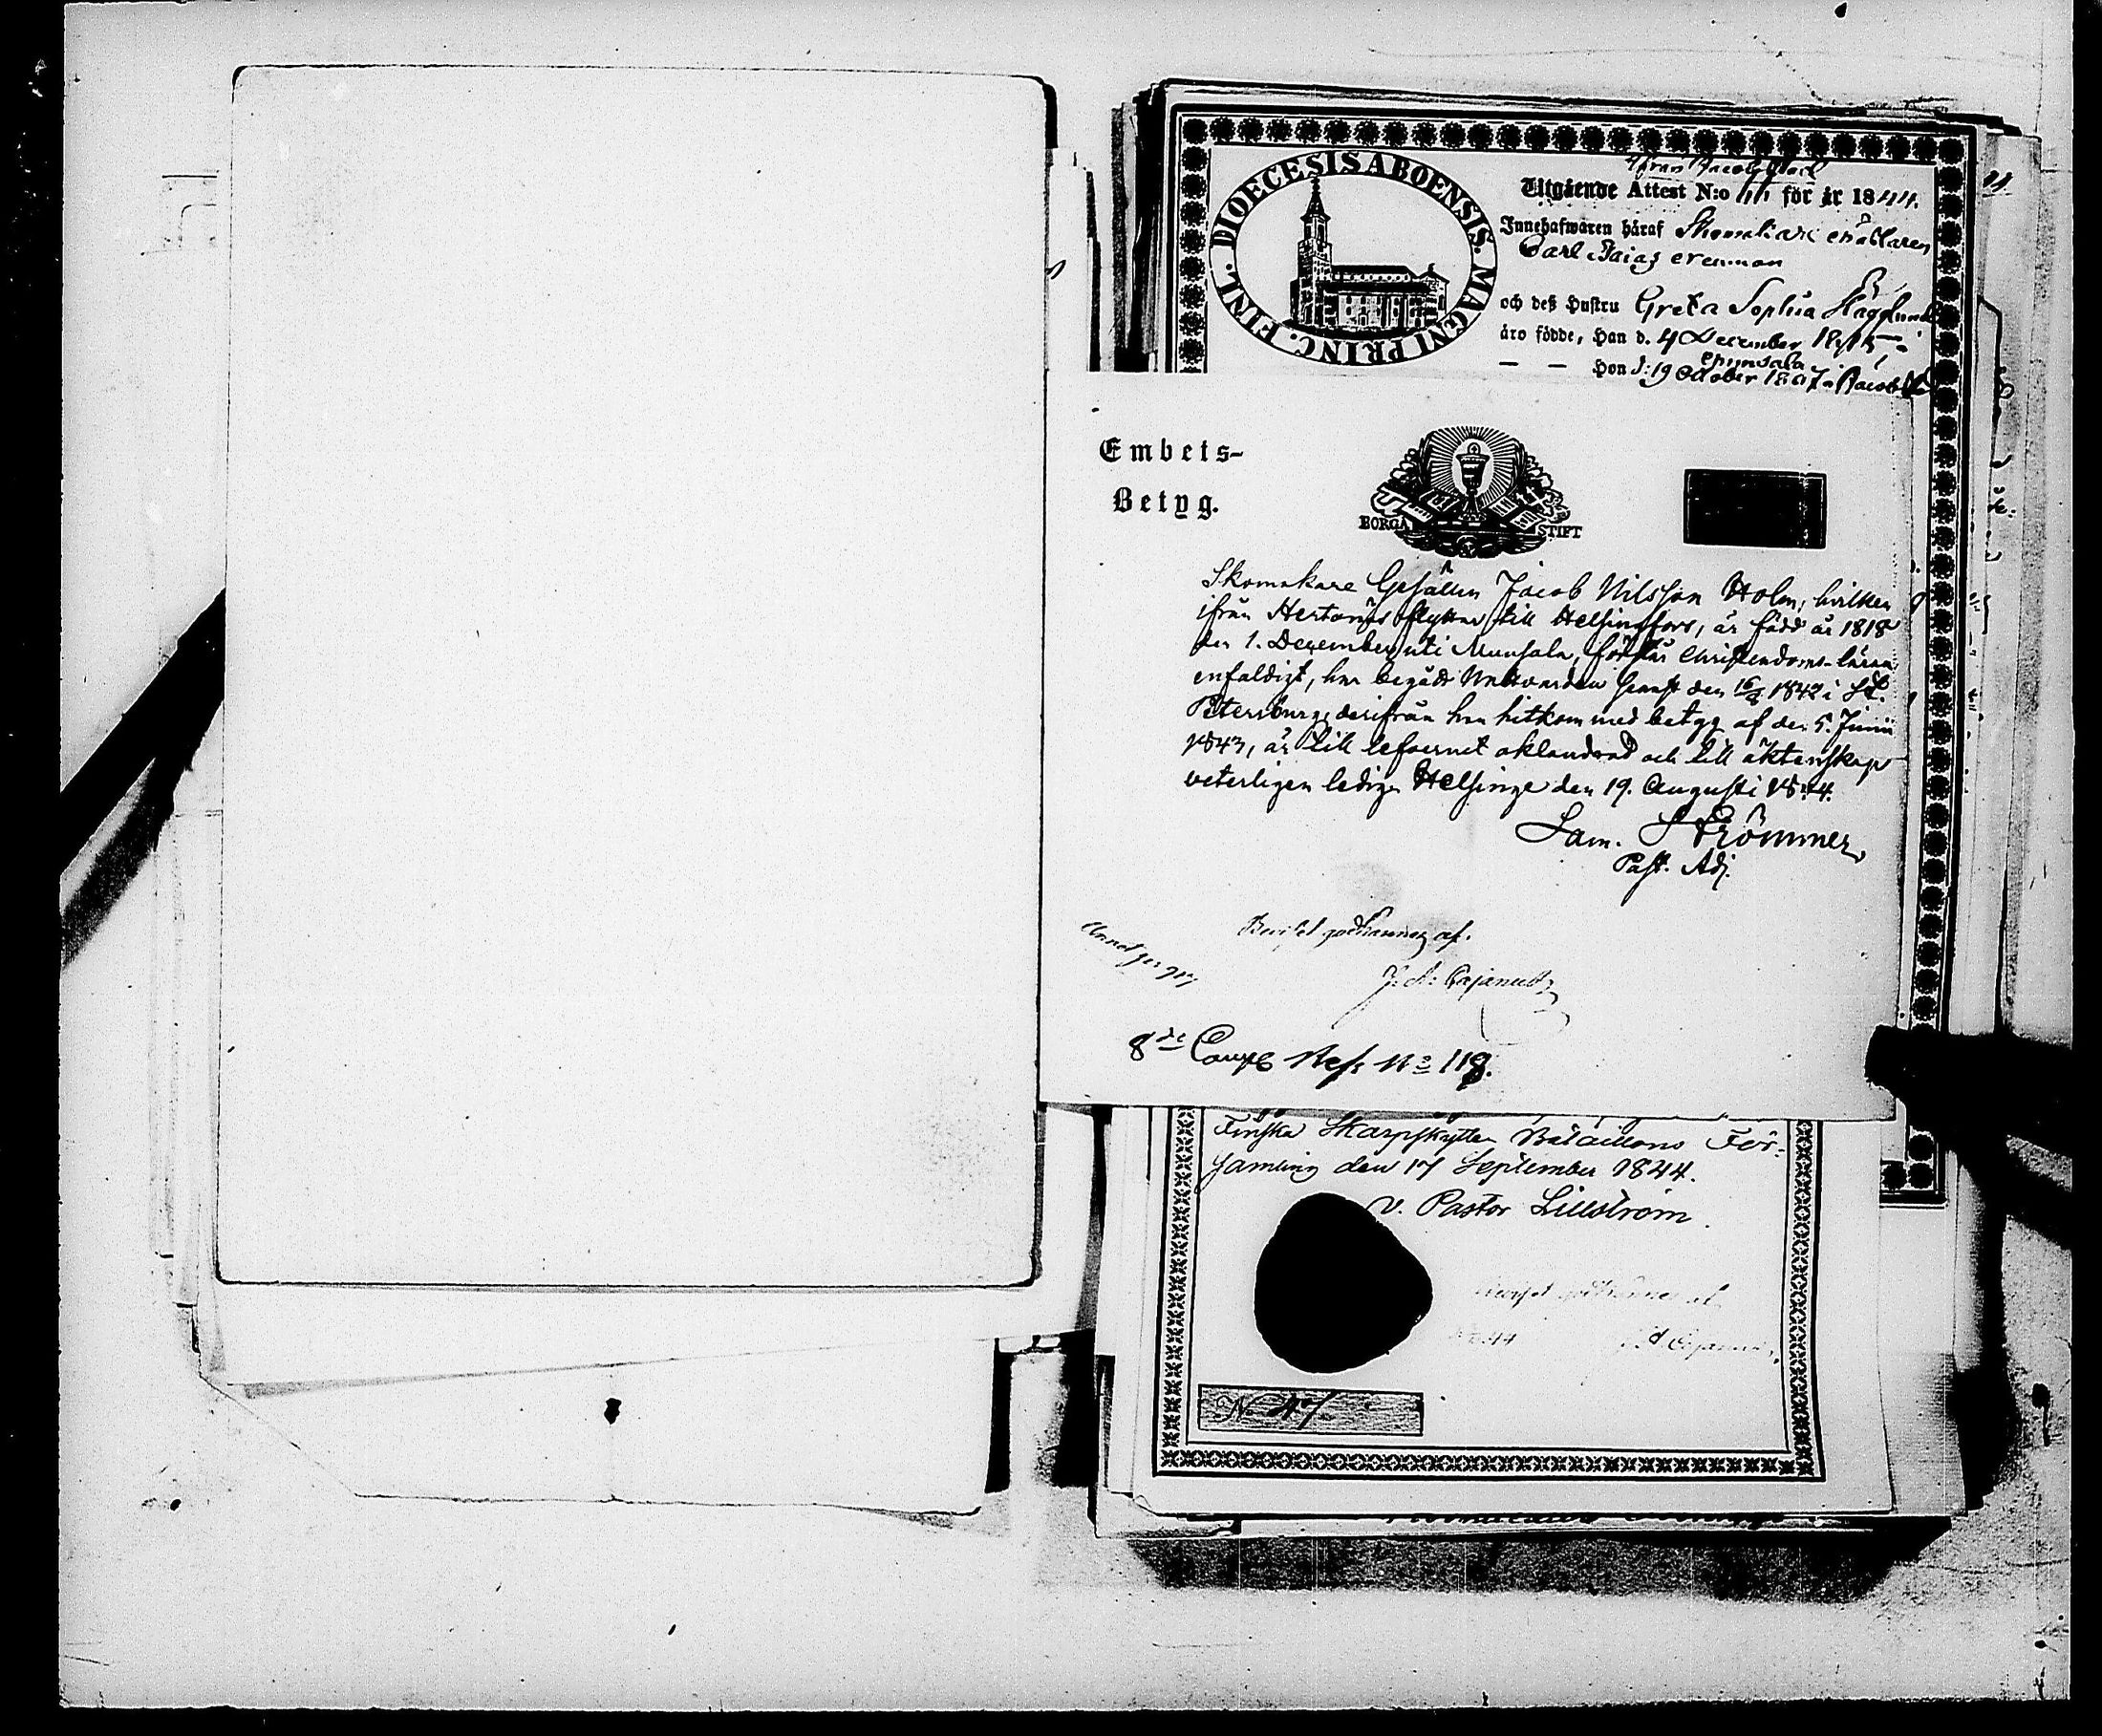 ifrån Jacobstad
Utgående Attest N:o 111 för år 1844.
Innehafwaren häraf Skomakare
Carl
och deß Hustru Greta Sophia Hägglund
äro födde, Han d. 4 December
Munsala
— — Hon d: 19 October 1807 i Jacobstad
DIOECESIS ABOENSIS. MAGNI PRINC. FINL.
Embets-
Betyg.
BORGÅ STIFT
Skomakare Gesällen Jacob Nilsson Holm, hvilken
ifrån Hertonäs flyttar till Helsingfors, är född år 1818
den 1. December uti Munsala, förstår Christendoms-läran
enfaldigt, har begått Nattvarden senast den 1842 i St.
Petersburg, derifrån han hitkom med betyg af den 5. Junii
1843, är till lefvernet oklandrad och till äktenskap
veterligen ledig. Helsinge den 19. Augusti 1844.
Sam. Strömmer
Past. Adj.
Beviset godkännes af.
J. A: Cajanus
8de Comp Ref: No 118.
Finska Skarpskytte Bataillons För-
samling den 17 September 1844.
v. Pastor Lillström.
Beviset godkännes af
Cajanus
No 47.